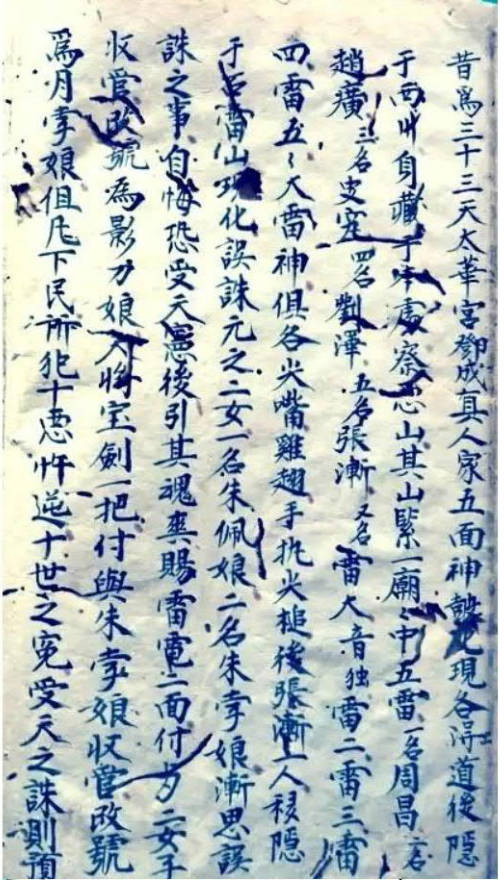 昔爲三十三天太華宮鄧成真人家五面神鼓現各淂道後隱
于西川自藏于本處察忿山其山緊一廟〻中五雷一名周昌二名
趙廣三名史定四名劉澤五名張漸又名雷大音独雷二雷三雷
四雷五〻大雷神俱各尖嘴雞翅手执火槌後張漸一人移隐
于雷山巧化誤誅元之二女一名朱佩娘二名朱孛娘漸思誤
誅之事自悔恐受天憲後引其魂奭賜雷電二面付为二女子
收管改號為影刀娘又將宝劍一把付與朱孛娘收管改號
爲月孛娘但凡下民所犯十惡忤逆十世之冤受天之誅則預